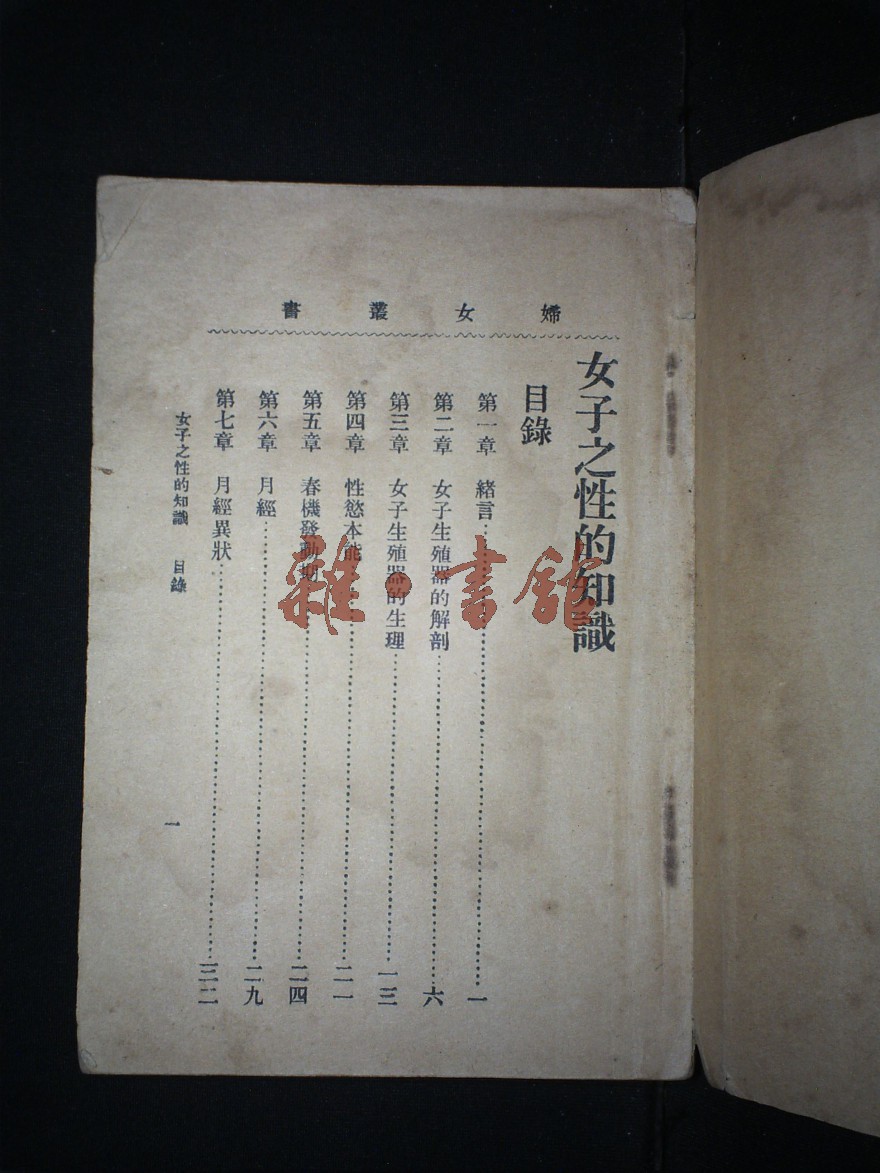 婦女叢書
女子之性的知識
目錄
第一章　緒言……………………一
第二章　女子生殖器的解剖……………………六
第三章　女子生殖器的生理……………………一三
第四章　性慾本能……………………二一
第五章　春機發動期……………………二四
第六章　月經……………………二九
第七章　月經異狀……………………三二
女子之性的知識　目錄
一
雜·書館